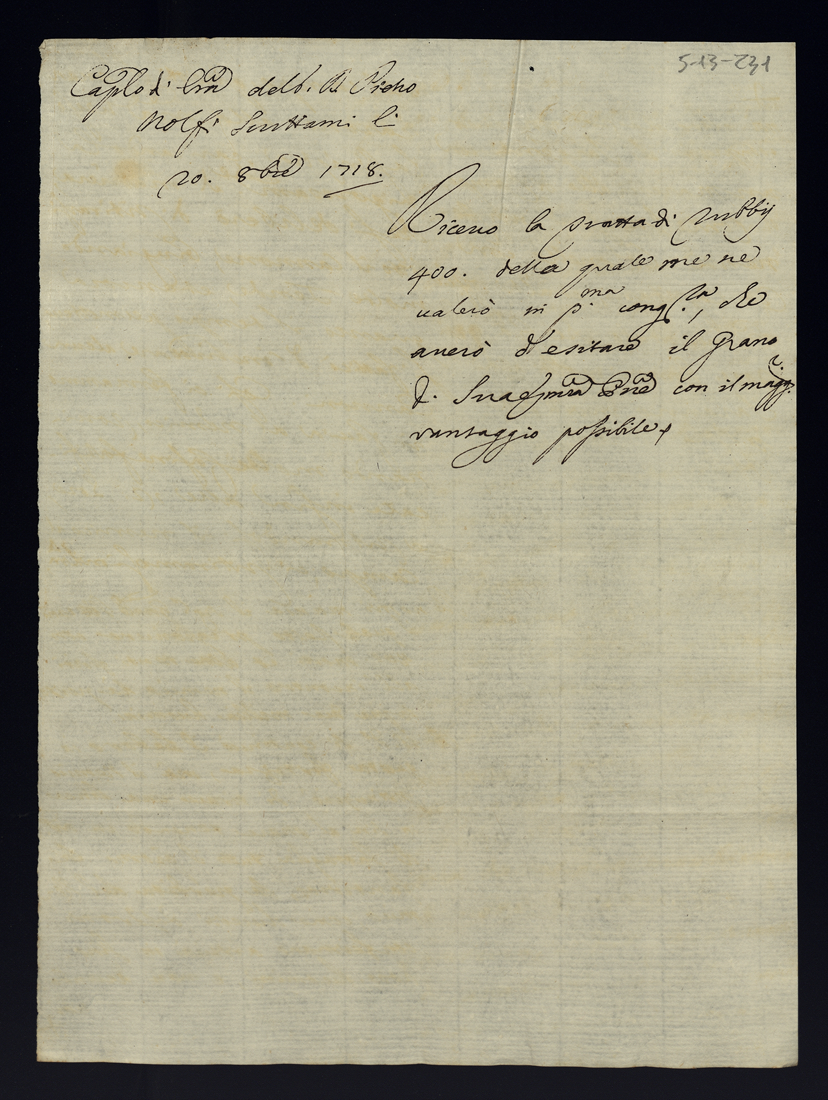 5-13-231
Cap.lo di lra del S.r Pietro
Nolfi scrittami li
20. 8bre 1718.
Ricevo la tratta di rubby
400. della quale me ne
valerò in p.ma cong.ra, che
averò d'esitare il grano
d. Sua Em.za con il magg.r
vantaggio possibile